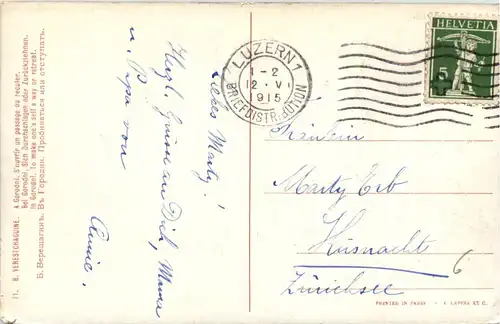 71. B. VERESTCHAGUINE. A Gorodni. S'ouvrir un passage ou reculer.
bei Gorodni. Sich Durchschlagen oder Zurückziehen.
in Gorodni. To make one's self a way or retreat.
Б. Верещагинъ. Въ Городни. Пробиваться или отступать.
Liebes Marty!
Herzl. Grüsse an Dich, Mama
u. Papa von
Annie.
HELVETIA
5
LUZERN 1
1-2
12. VI
1915
BRIEFDISTRIBUTION
Fräulein
Marty Erb
Küsnacht
Zürichsee
6
PRINTED IN PARIS - I. LAPINA ET C.